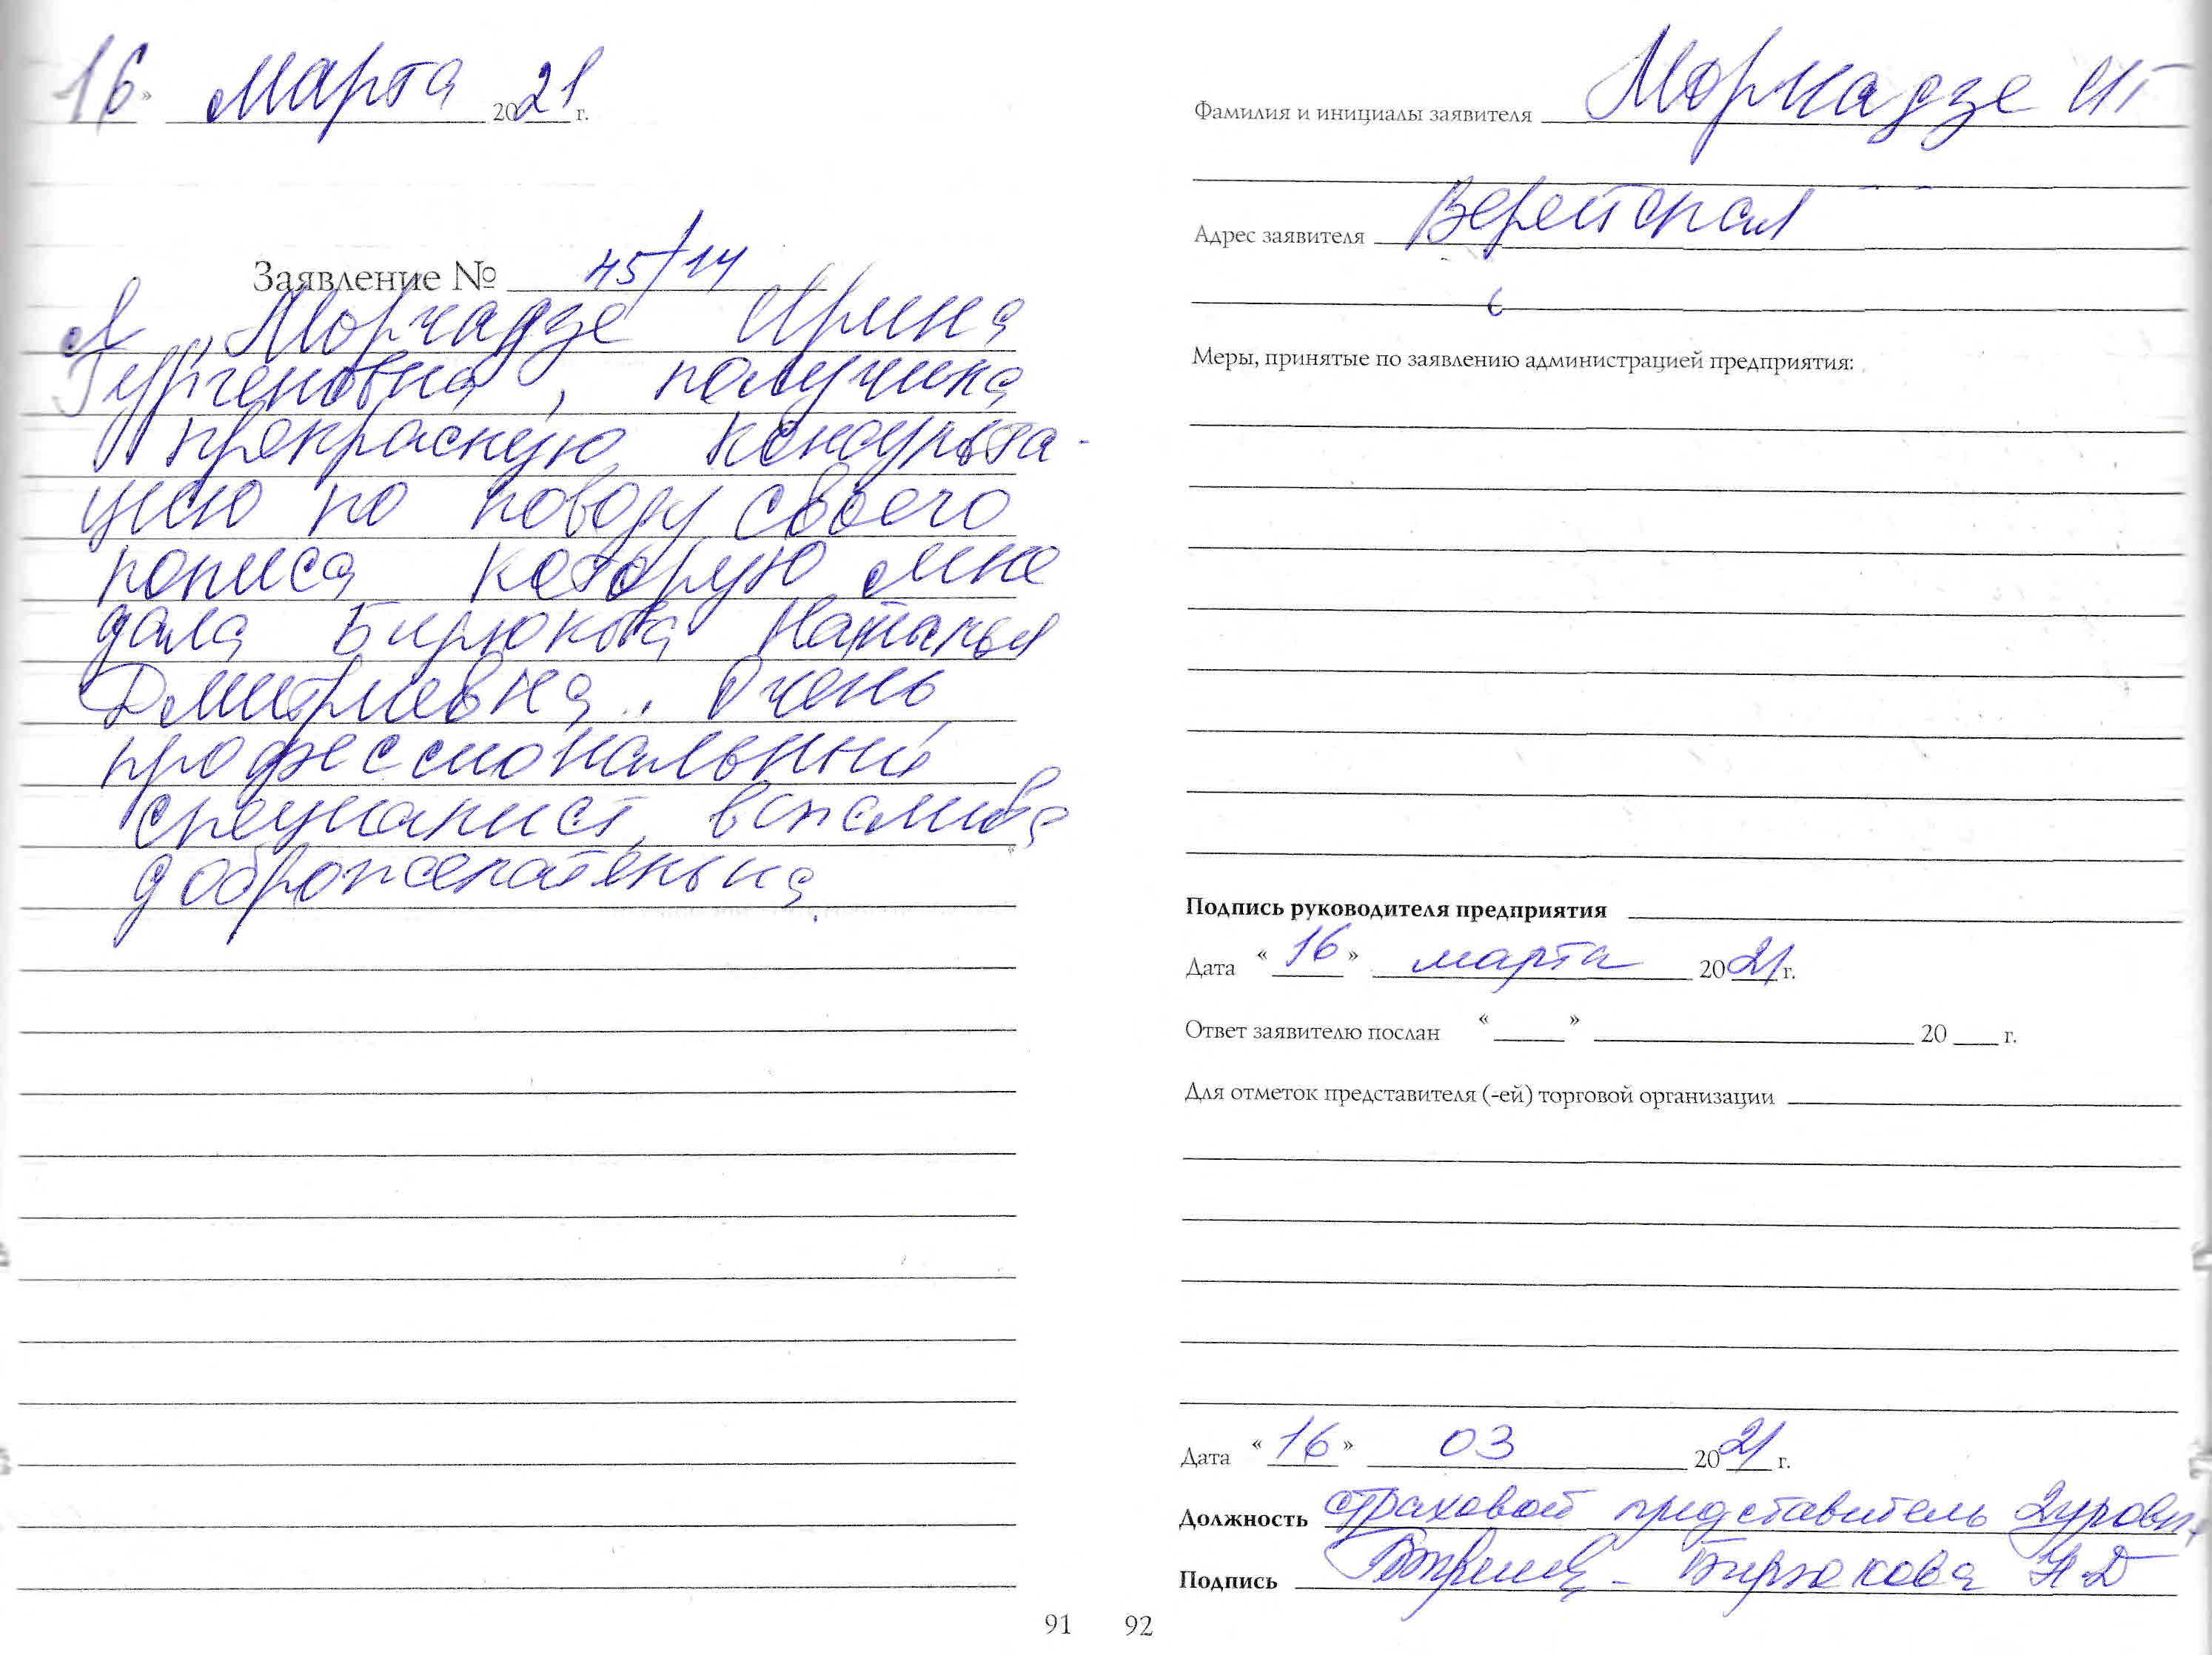 16» Марта 2021 г.
Заявление № 45/14
Я, Морчадзе Ирина
Гургеновна, получила
прекрасную консульта-
цию по поводу своего
полиса которую мне
дала Бирюкова Наталья
Дмитриевна. Очень
профессиональный
специалист,
доброжелательна.
91
Фамилия и инициалы заявителя Морчадзе ИГ
Адрес заявителя Верейская
Меры, принятые по заявлению администрацией предприятия:
Подпись руководителя предприятия
Дата «16» марта 2021 г.
Ответ заявителю послан « » 20 г.
Для отметок представителя (-ей) торговой организации
Дата «16» 03 2021 г.
Должность страховой представитель 2 уровн.
Подпись - Бирюкова Н Д
92